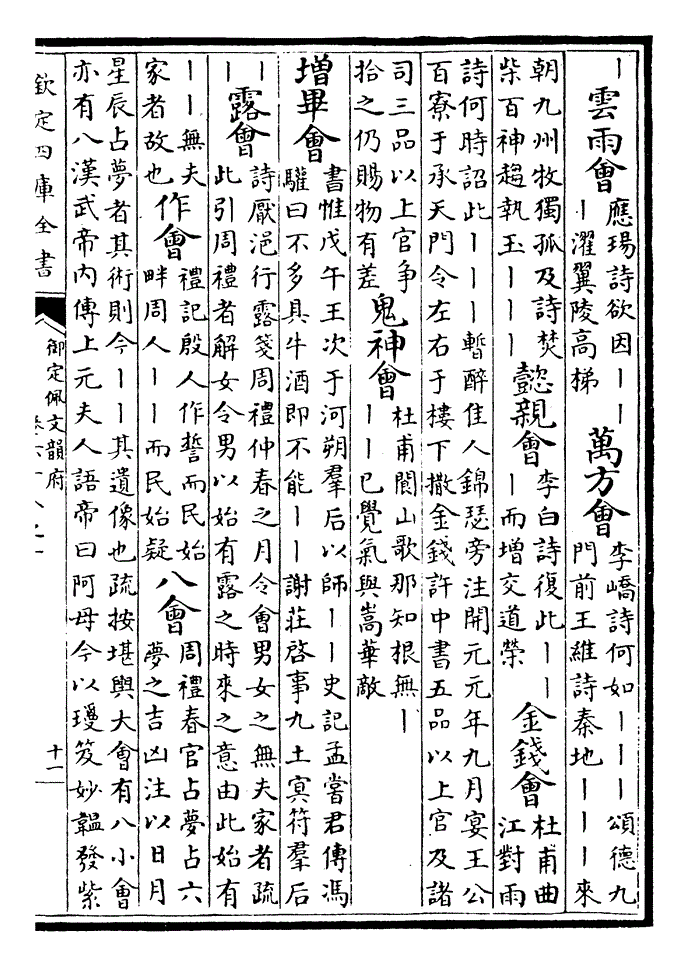 ｜雲雨會
應瑒詩欲因｜｜
｜濯翼陵高梯
萬方會
李嶠詩何如｜｜｜頌德九
門前王維詩秦地｜｜｜來
朝九州牧獨孤及詩焚
柴百神趨執玉｜｜｜
懿親會
李白詩復此｜｜
｜而增交道榮
金錢會
杜甫曲
江對雨
詩何時詔此｜｜｜暫醉佳人錦瑟旁注開元元年九月宴王公
百寮于承天門令左右于樓下撒金錢許中書五品以上官及諸
司三品以上官争
拾之仍賜物有差
鬼神會
杜甫閬山歌那知根無｜
｜｜已覺氣與嵩華敵
增畢會
書惟戊午王次于河朔羣后以師｜｜史記孟嘗君傳馮
驩曰不多具牛酒即不能｜｜謝莊啓事九土㝠符羣后
｜露會
詩厭浥行露箋周禮仲春之月令會男女之無夫家者疏
此引周禮者解女令男以始有露之時來之意由此始有
｜｜無夫
家者故也
作會
禮記殷人作誓而民始
畔周人｜｜而民始疑
八會
周禮春官占夢占六
夢之吉凶注以日月
星辰占夢者其術則今｜｜其遺像也疏按堪輿大會有八小會
亦有八漢武帝内傳上元夫人語帝曰阿母今以瓊笈妙韞發紫
欽定四庫全書
御定佩文韻府
十一